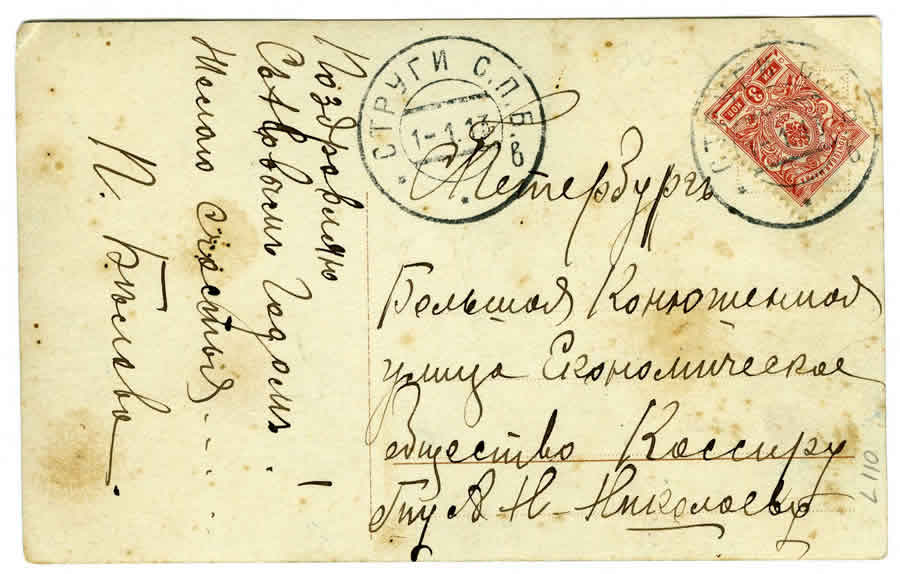 Поздравляю
Съ Новымъ Годомъ.
Желаю счастья...
П. Бѣлово
СТРУГИ С.П.Б.
1-1.13
в
Петербургъ
Большая Конюшенная
улица Економическое
общество Кассиру
А. Н. Николаевъ
L110